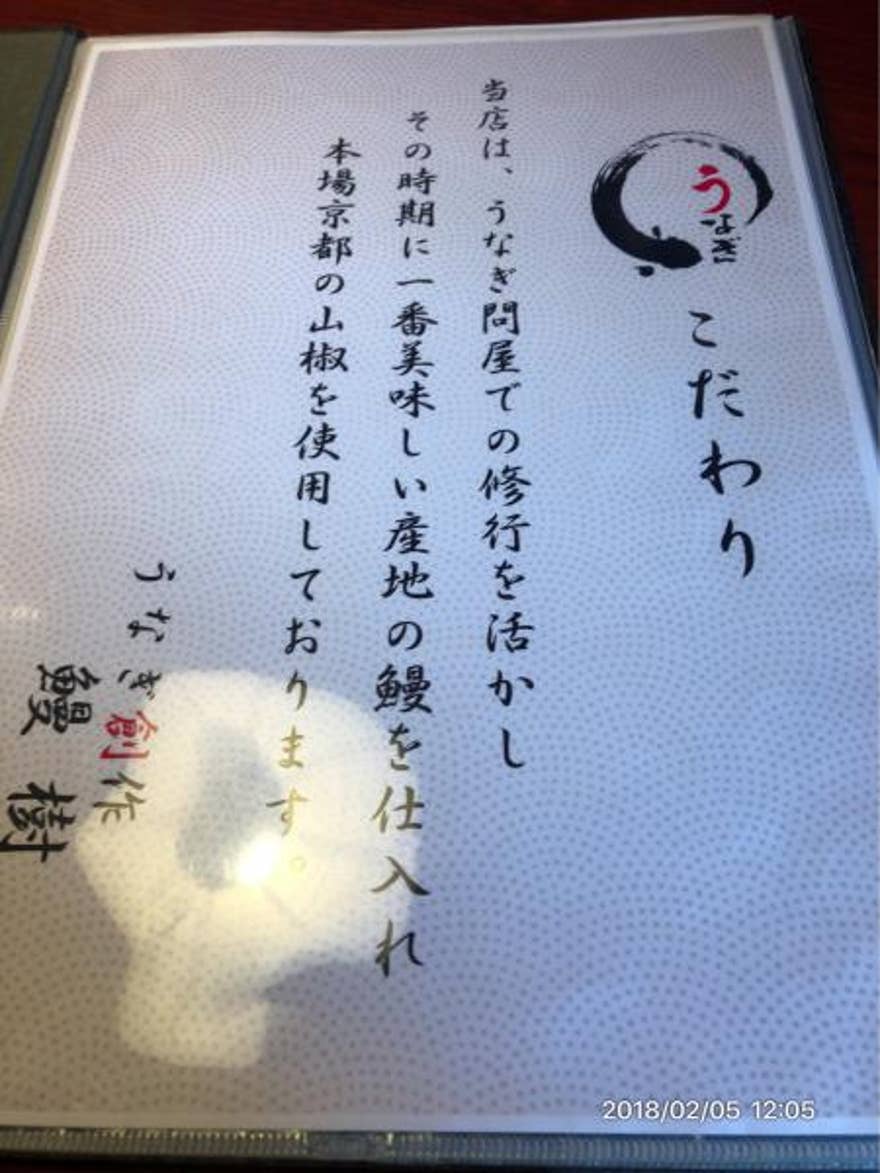 うなぎ
こだわり
当店は、うなぎ問屋での修行を活かし
その時期に一番美味しい産地の鰻を仕入れ
本場京都の山椒を使用しております。
うなぎ創作
鰻樹
2018/02/05 12:05